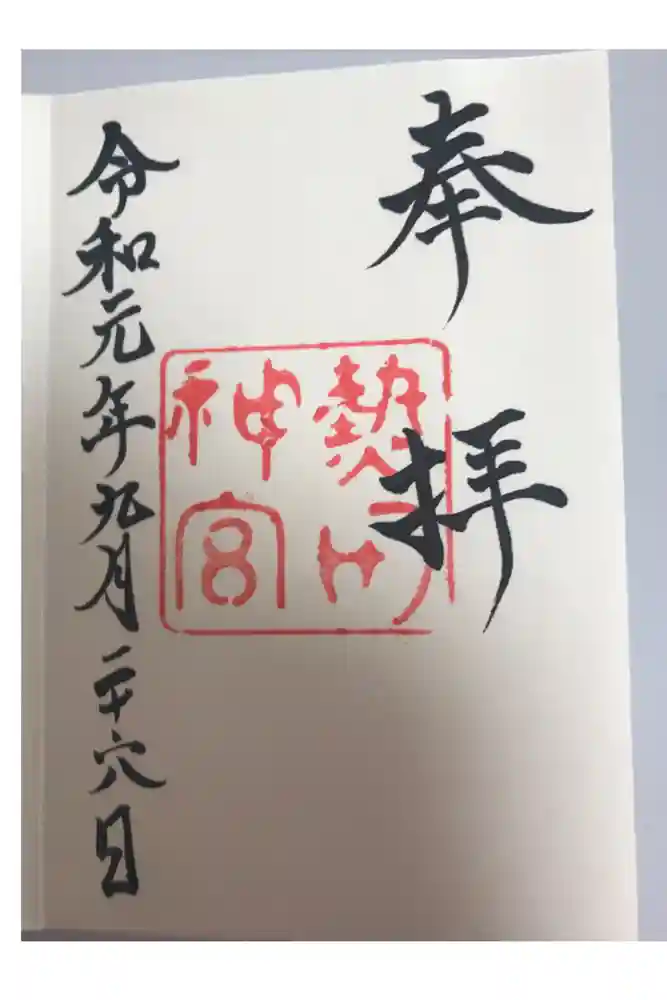 奉拝
熱田
神宮
令和元年九月二十六日